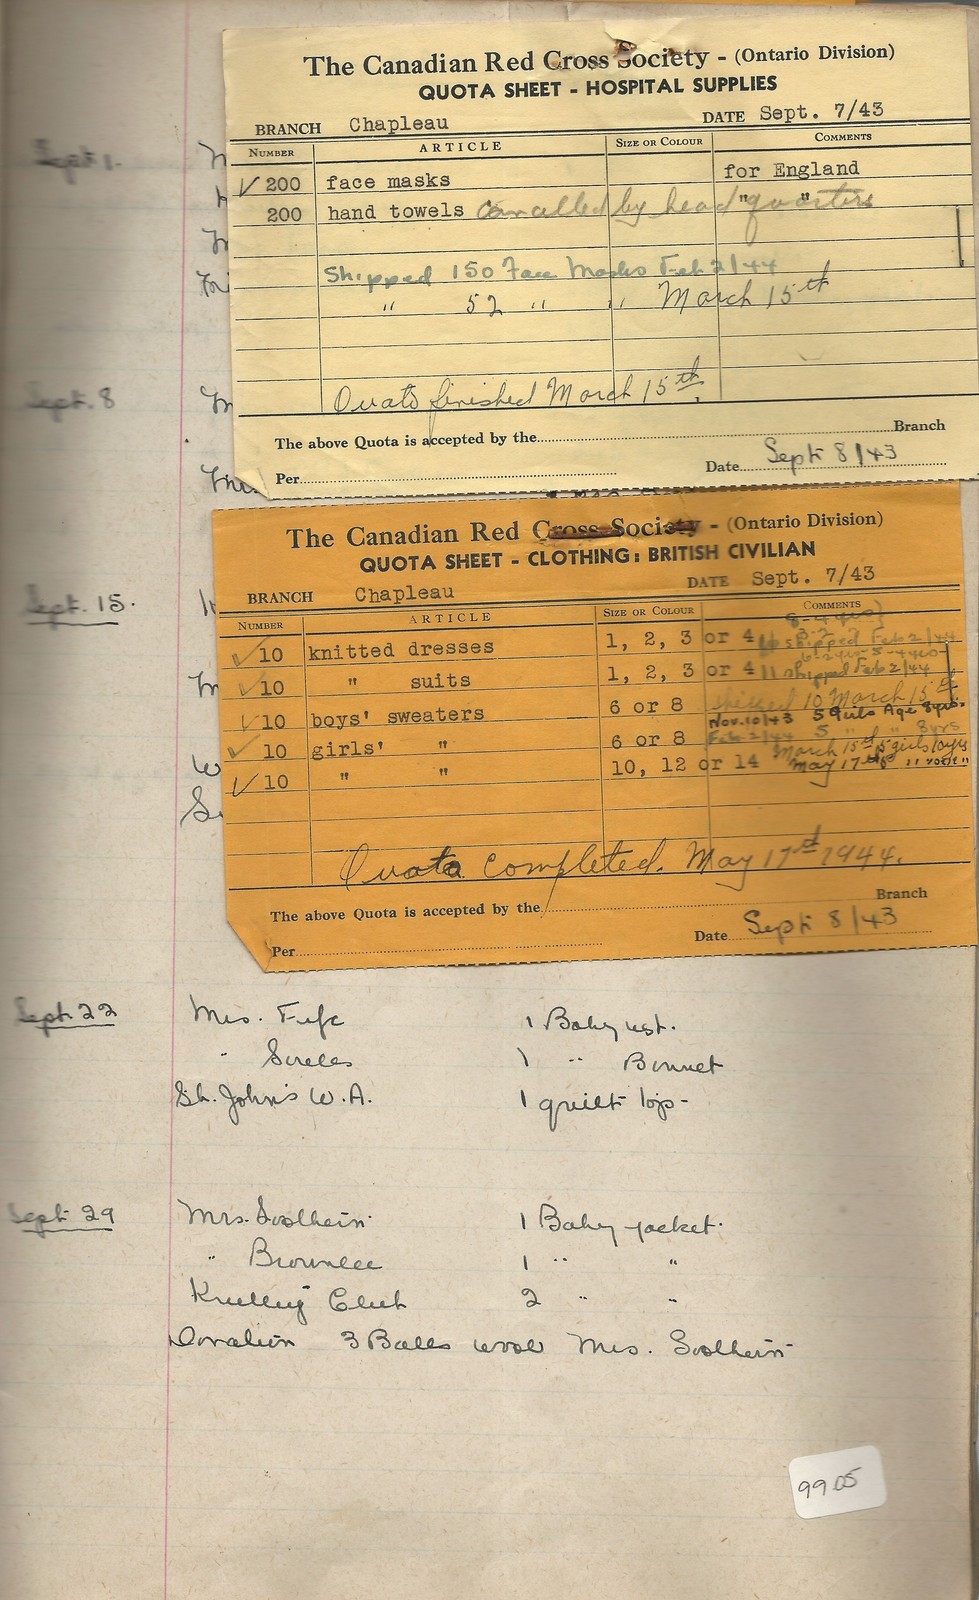 The Canadian Red Cross Society - (Ontario Division)
QUOTA SHEET - HOSPITAL SUPPLIES
BRANCH Chapleau DATE Sept. 7/43
NUMBER ARTICLE SIZE OR COLOUR COMMENTS
✓ 200 face masks for England
200 hand towels Cancelled by head quarters " "
Shipped 150 Face Masks Feb 2/44
" 52 " " March 15th
Quota finished March 15th.
The above Quota is accepted by the Branch
Per Date Sept 8/43
Sept 1.
Sept. 8
The Canadian Red Cross Society - (Ontario Division)
QUOTA SHEET - CLOTHING: BRITISH CIVILIAN
BRANCH Chapleau DATE Sept. 7/43
NUMBER ARTICLE SIZE OR COLOUR COMMENTS
✓ 10 knitted dresses 1, 2, 3 or 4 shipped Feb 2/44
✓ 10 " suits 1, 2, 3 or 4 11 shipped Feb 2/44
✓ 10 boys' sweaters 6 or 8 shipped 10 March 15th
Nov. 10/43 5 Girls Age 8yrs.
✓ 10 girls' " 6 or 8 Feb 2/44 5 " " 8yrs
March 15th 5 girls 10yrs
✓ 10 " " 10, 12 or 14 May 17th
Quota completed. May 17st 1944.
The above Quota is accepted by the Branch
Per Date Sept 8/43
Sept. 15.
Sept 22 Mrs. Fife 1 Baby
" 1 " Bonnet
St. John's W.A. 1 quilt top-
Sept 29 Mrs. Soolhein 1 Baby jacket.
" Brownlee 1 " "
Knitting Club 2 " "
Donation 3 Balls wool Mrs. Soolhein
9905